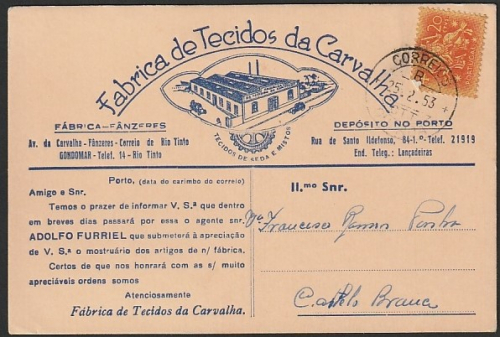 Fabrica de Tecidos da Carvalha
TECIDOS DE SEDA E MISTOS
CORREIOS
25.2.53
$20
FÁBRICA-FÂNZERES
Av. da Carvalha - Fânzeres - Correio de Rio Tinto
GONDOMAR - Telef. 14 - Rio Tinto
DEPÓSITO NO PORTO
Rua de Santo Ildefonso, 84-1.º - Telef. 21919
End. Teleg.: Lançadeiras
Porto, (data do carimbo do correio)
Amigo e Snr.
Temos o prazer de informar V. S.ª que dentro
em breves dias passará por essa o agente snr.
ADOLFO FURRIEL que submeterá à apreciação
de V. S.ª o mostruário dos artigos de n/ fábrica.
Certos de que nos honrará com as s/ muito
apreciáveis ordens somos
Atenciosamente
Fábrica de Tecidos da Carvalha.
Il.mo Snr.
Francisco Ramos
Castelo Branco